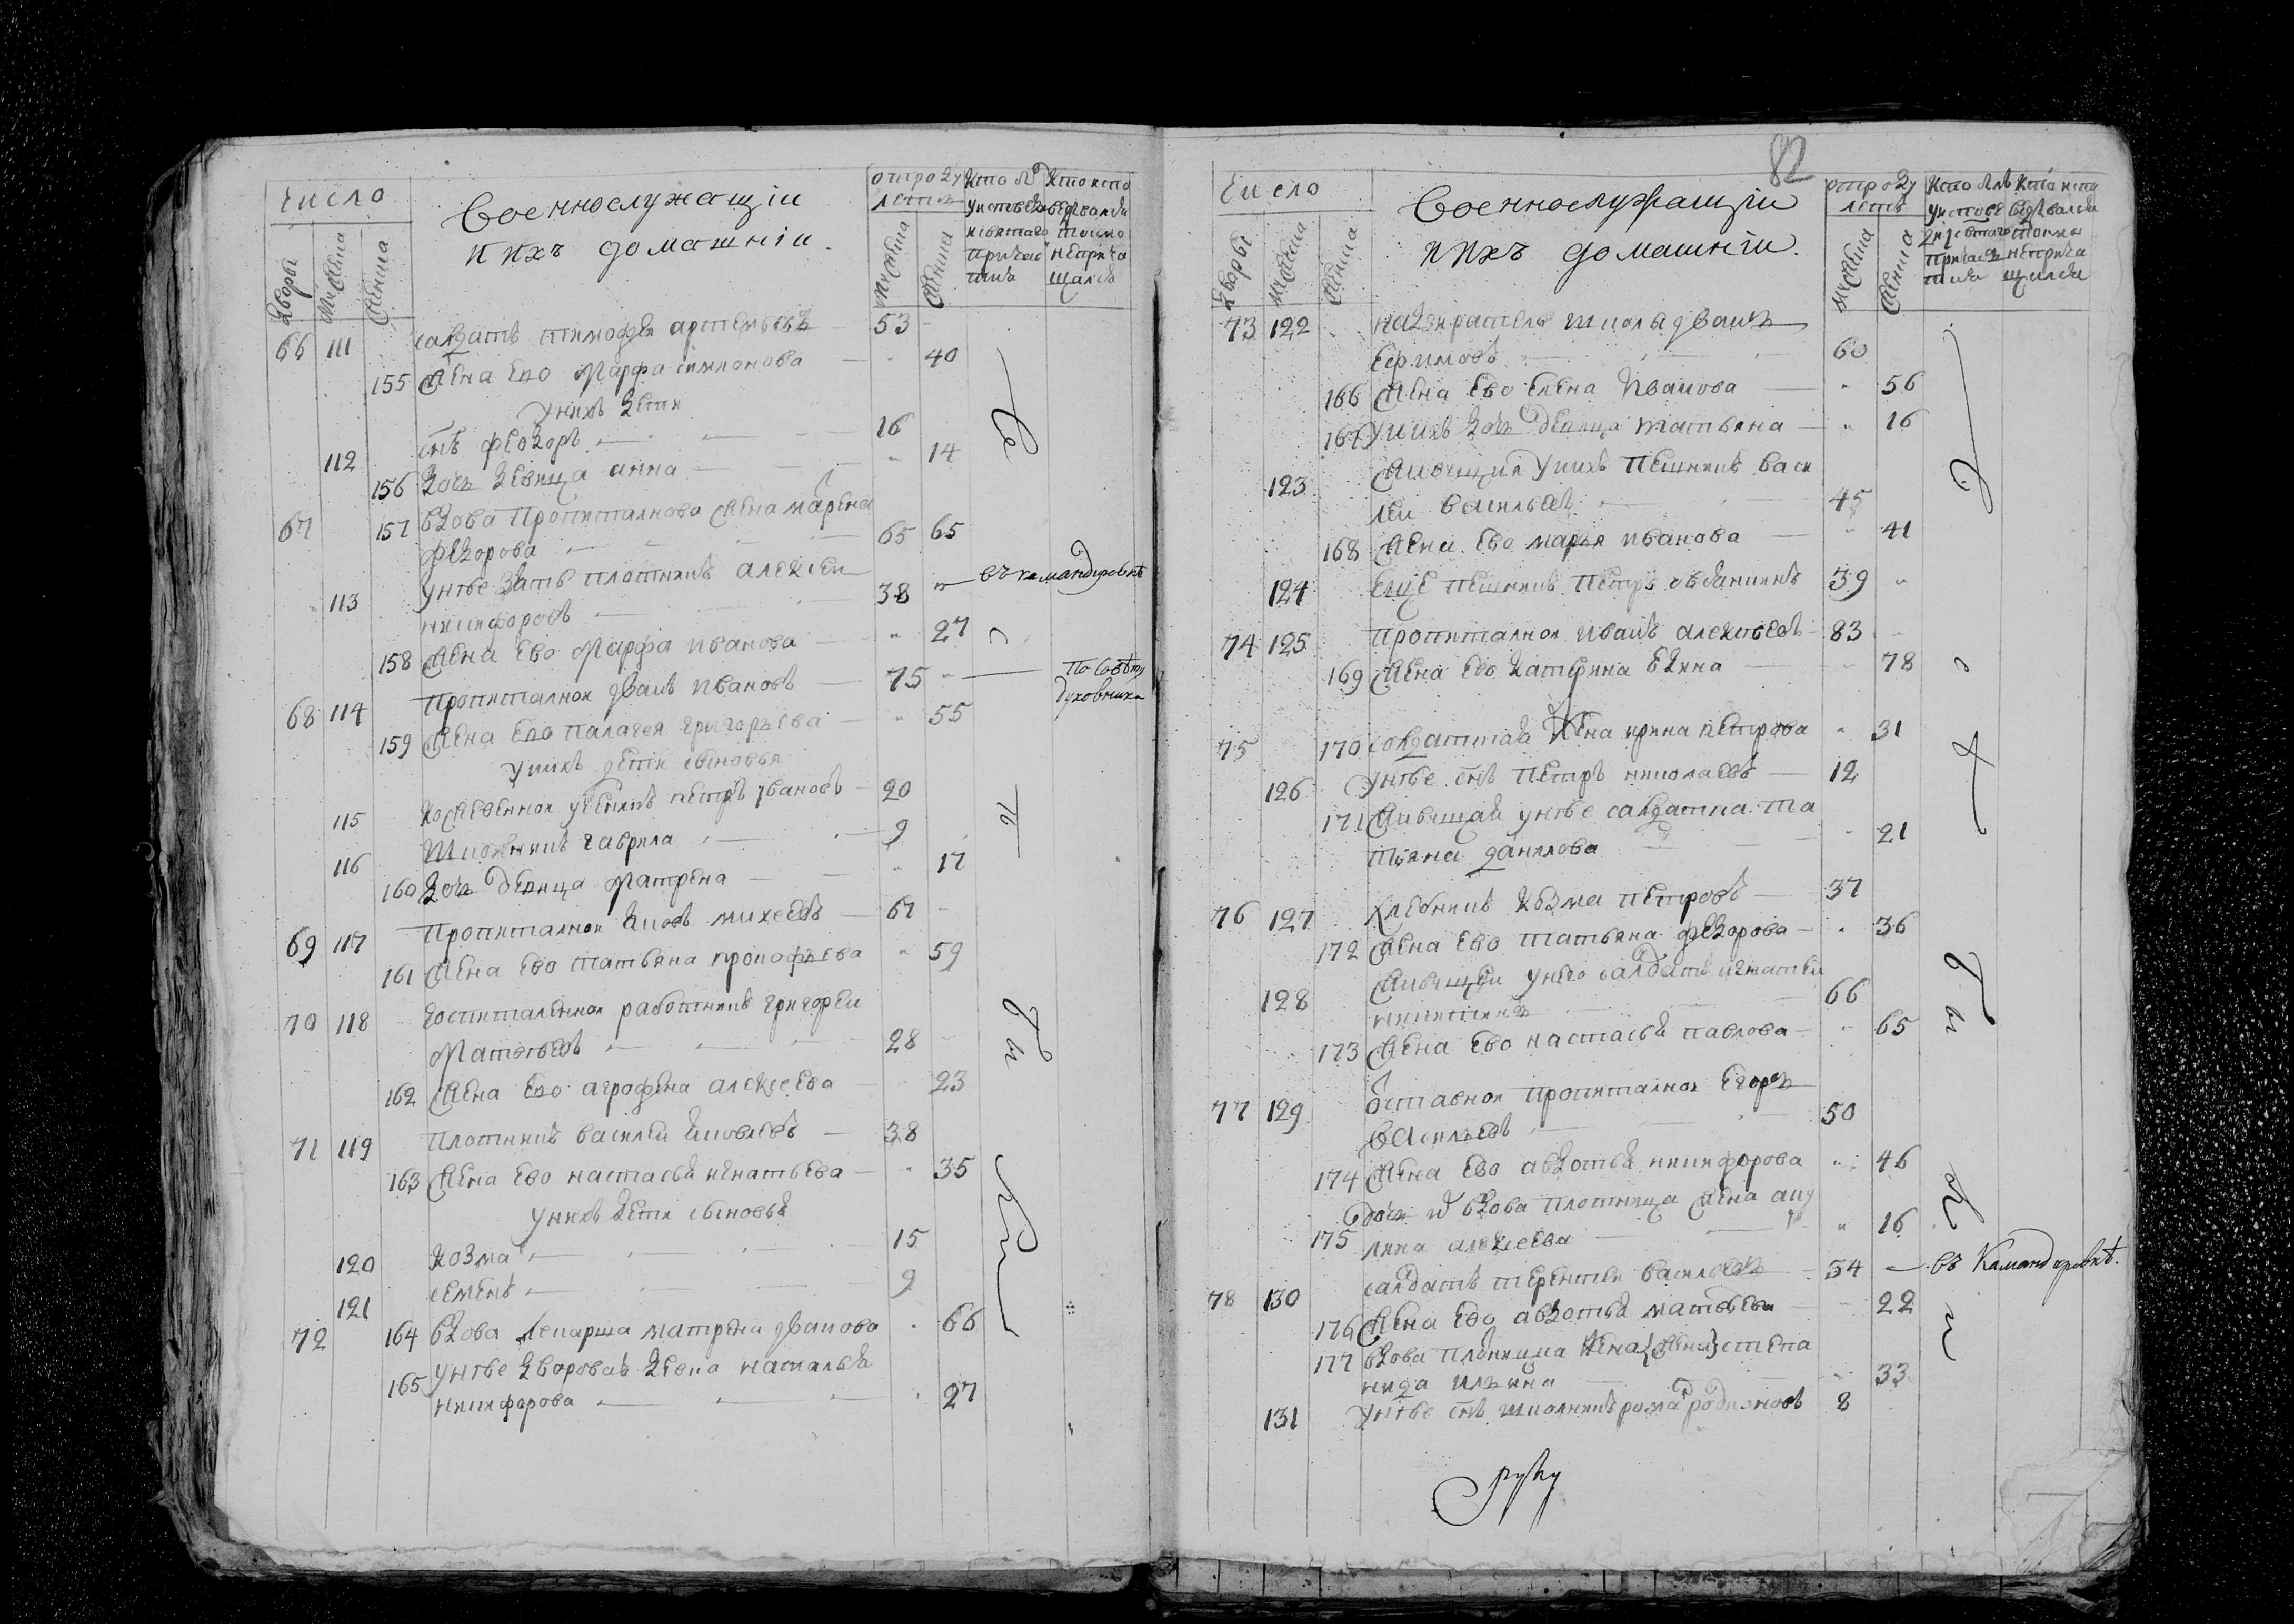 Число
Военнослужащіи
и ихъ домашніи.
отроду
летъ
Дворы
мужеска
женска
66 111 салдатъ тимофеи артемьевъ 53
155 жена ево марфа симионова 40
у нихъ дети
112 снъ феодоръ 16
156 дочь девица анна 14
67 157 вдова пропиталнова жена марена
федорова 65 65
113 у нее зять плотникъ алексеи 38 въ командировкѣ
никифоровъ
158 жена ево марфа иванова 27
68 114 пропиталнои иванъ ивановъ 75 по совѣту
духовника
159 жена ево палагея григорьева 55
у нихъ дети сыновья
115 кожевеннои ученикъ петръ ивановъ 20
116 школникъ гаврила 9
160 дочь девица матрена 17
69 117 пропиталнои яковъ михеевъ 67
161 жена ево татьяна прокофьева 59
70 118 госпиталеннои работникъ григореи
матвѣевъ 28
162 жена ево агрофена алексеева 23
71 119 плотникъ василеи яковлевъ 38
163 жена ево настасья игнатьева 35
у нихъ дети сыновья
120 козма 15
121 семенъ 9
72 164 вдова лекарша матрена иванова 66
165 у нее дворовая девка наталья
никифорова 27
82
Число
Военнослужащіи
и ихъ домашніи.
отроду
летъ
Дворы
мужеска
женска
73 122 надзиратель школы иванъ
ефимовъ 60
166 жена ево елена иванова 56
167 у нихъ дочь девица татьяна 16
123 живущия у нихъ пешникъ васи
леи васильевъ 45
168 жена ево марья иванова 41
124 еще пешникъ петръ овсяникъ 39
74 125 пропиталнои иванъ алексеевъ 83
169 жена ево катерина 78
75 170 солдатская жена ирина петрова 31
126 у нее снъ петръ николаевъ 12
171 живущая у нее салдатка та
тьяна данилова 21
76 127 хлебникъ козма петровъ 37
172 жена ево татьяна федорова 36
128 живущеи у него салдатъ игнатеи
никитинъ 66
173 жена ево настасья павлова 65
77 129 оставнои пропиталнои егоръ
васильевъ 50
174 жена ево авдотья никифорова 46
175 дочь и вдова плотница жена аку
лина алексеева 16
78 130 салдатъ терентеи васильевъ 34 въ Командировкѣ.
176 жена ево авдотья матвеева 22
177 вдова жена (жена) степа
нида ильина 33
131 у нее снъ школникъ рома родионовъ 8
руку